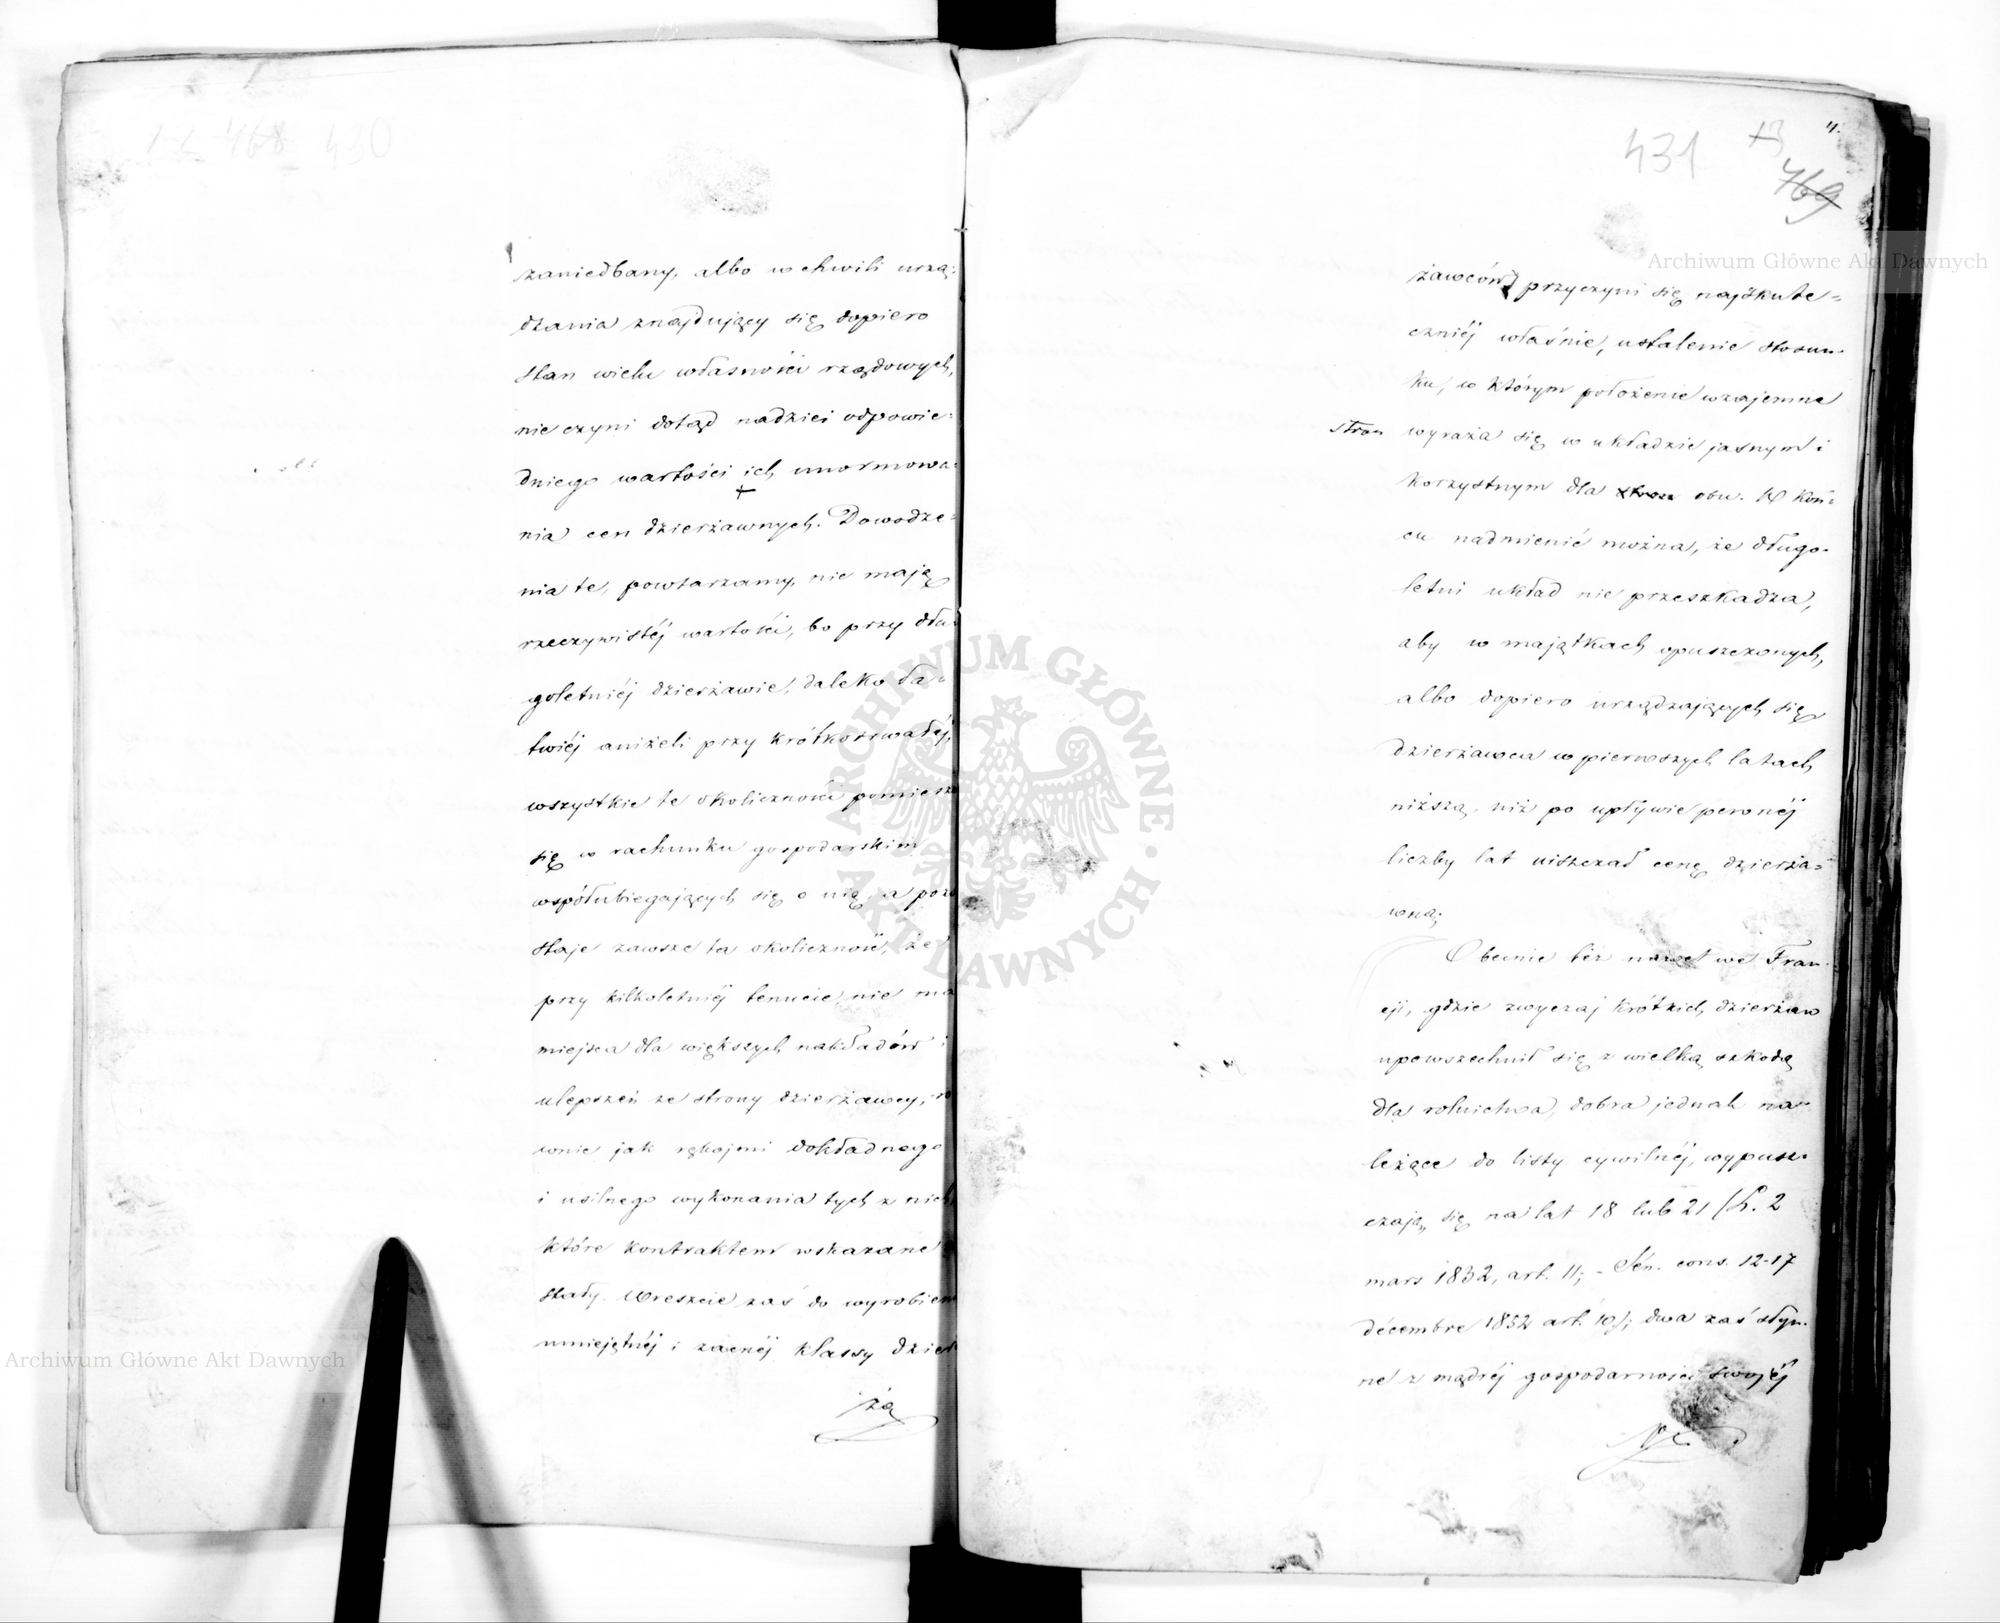 12 468 430
zaniedbany, albo w chwili urzą-
dzania znajdujący się dopiero
stan wielu własności rządowych,
nie czyni dotąd nadziei odpowie-
dniego wartości ich unormowa-
nia cen dzierżawnych. Dowodze-
nia te, powtarzamy, nie mają
rzeczywistéj wartości, bo przy dłu-
goletniéj dzierżawie, daleko ła-
twiéj aniżeli przy krótkotrwałéj,
wszystkie te okoliczności pomieszc
się w rachunku gospodarskim
współubiegających się o nią, a pozo
staje zawsze ta okoliczność, że
przy kilkoletniéj tenucie, nie ma
miejsca dla większych nakładów i
ulepszeń ze strony dzierżawcy, ró
wnie jak rękojmi dokładnego
i usilnego wykonania tych z nich
które kontraktem wskazane
stały. Wreszcie zaś do wyrobien
umiejętnéj i zacnéj klassy dzier
ża
4.
431 13
469
żawców przyczyni się najskute-
czniéj właśnie, ustalenie stosun-
ku, w którym położenie wzajemne
stron wyraża się w układzie jasnym i
korzystnym dla stron obu. W koń-
cu nadmienić można, że długo-
letni układ nie przeszkadza,
aby w majątkach opuszczonych,
albo dopiero urządzających się
dzierżawca w pierwszych latach
niższą, niż po upływie pewnéj
liczby lat uiszczał cenę dzierża-
wną.
Obecnie też nawet we Fran-
cji, gdzie zwyczaj krótkich dzierżaw
upowszechnił się z wielką szkodą
dla rolnictwa, dobra jednak na-
leżące do listy cywilnéj, wypusz-
czają się na lat 18 lub 21 (L. 2
mars 1832, art. 11; - Sén. cons. 12-17
décembre 1852 art. 10); dwa zaś słyn-
ne z mądréj gospodarności swojéj
Archiwum Główne Akt Dawnych
Archiwum Główne Akt Dawnych
ARCHIWUM GŁÓWNE · AKT DAWNYCH ·